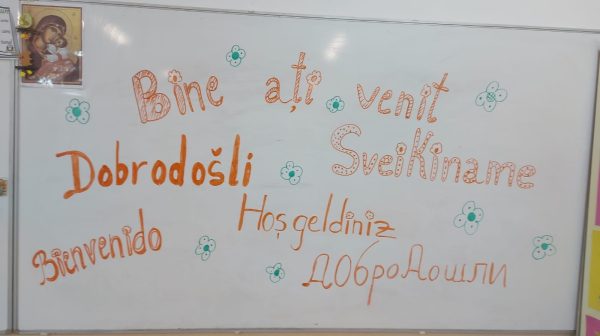 Bine ați venit
Dobrodošli
Sveikiname
Hoşgeldiniz
Bienvenido
Добродошли